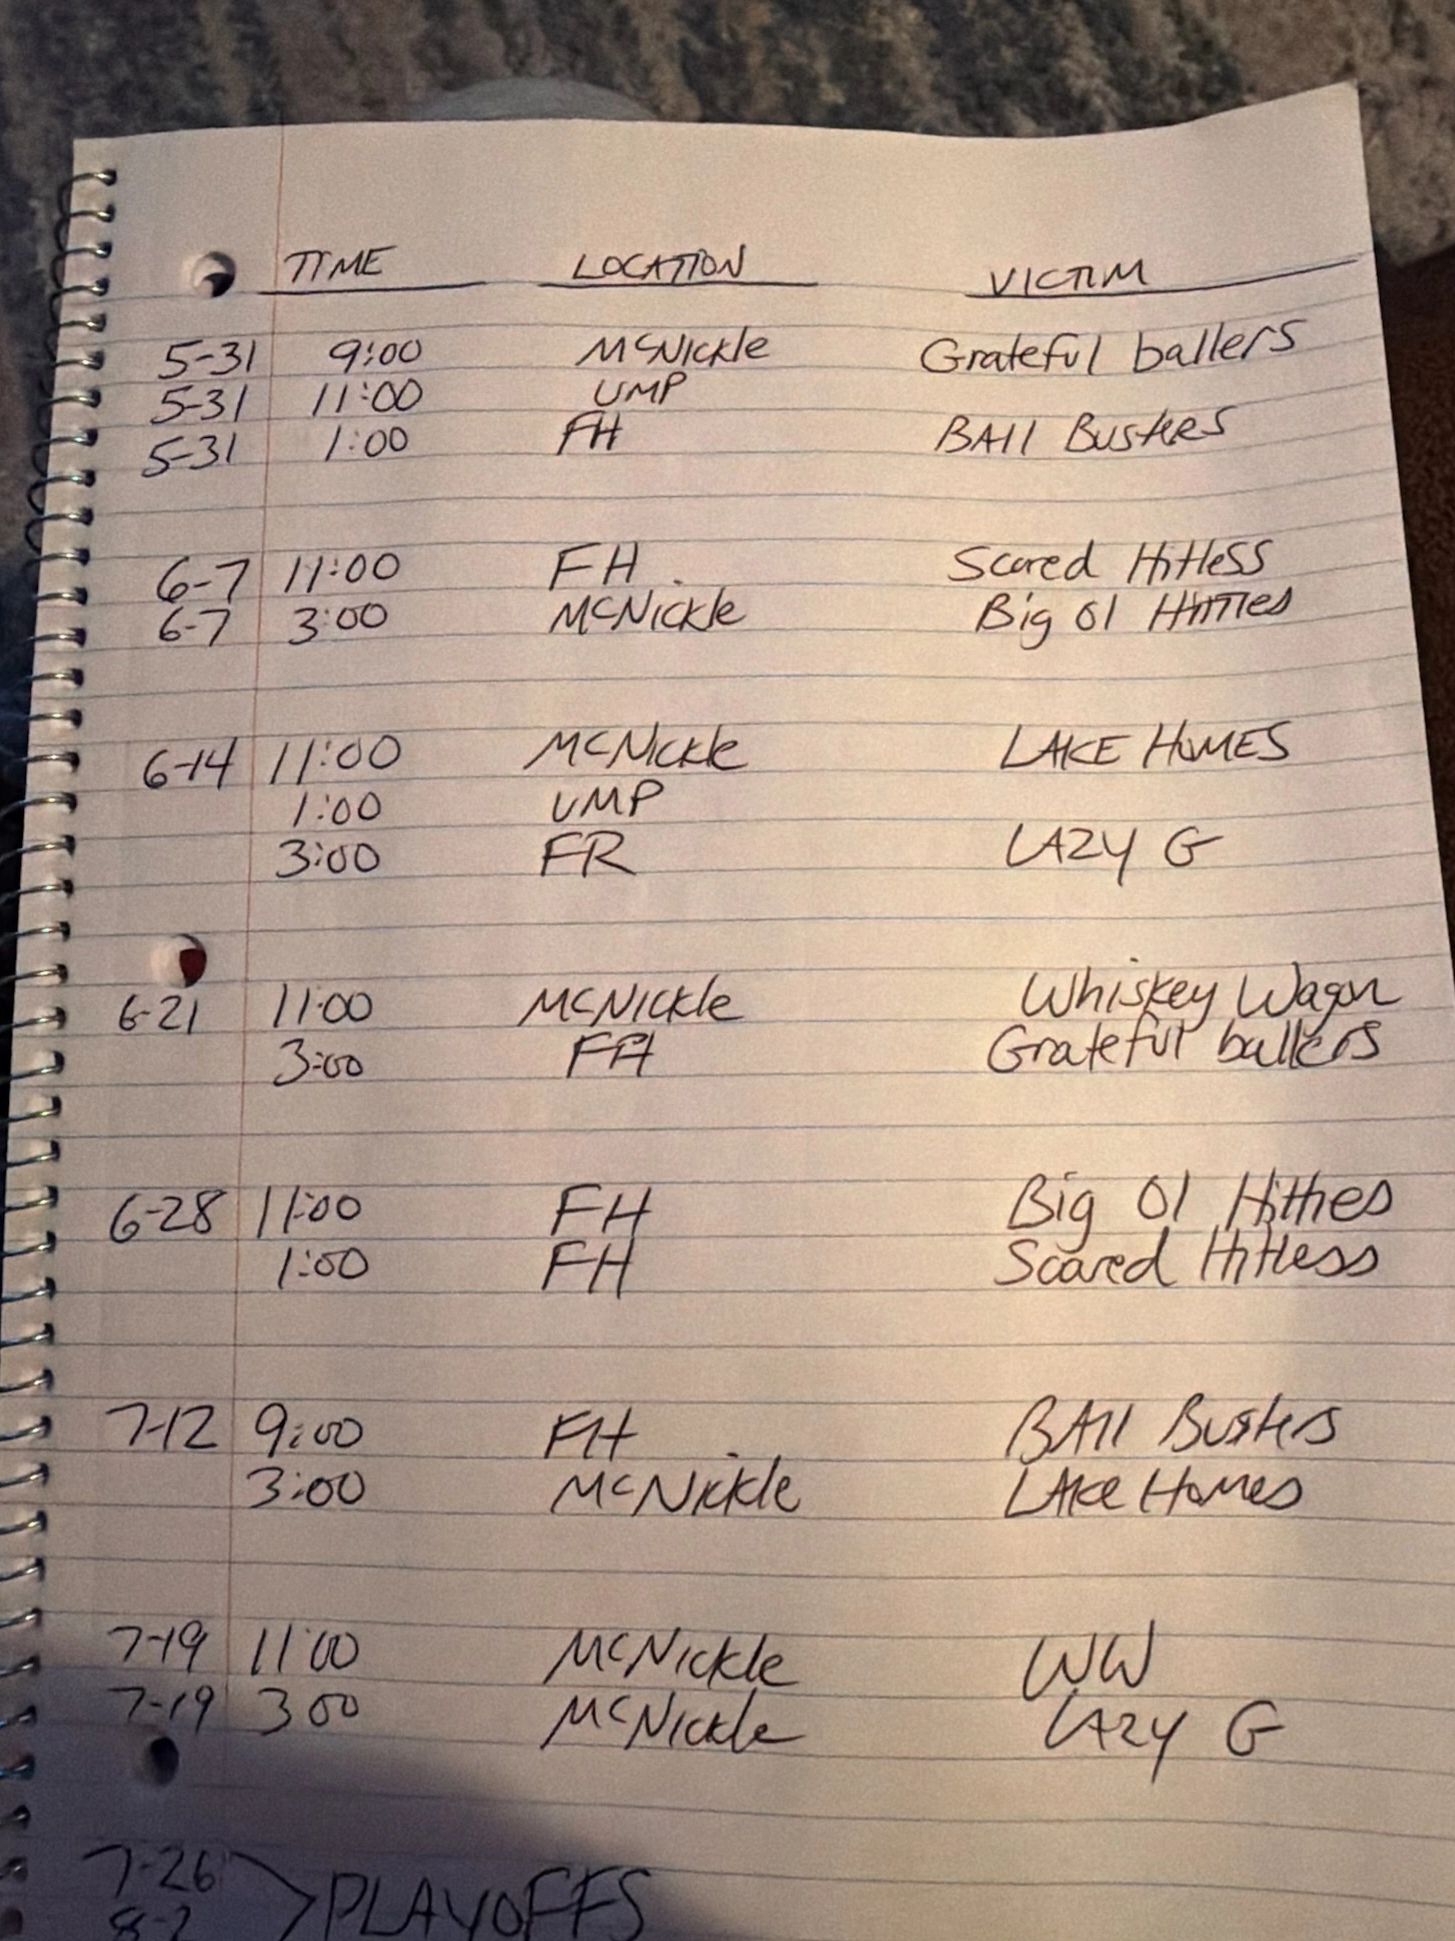 TIME LOCATION VICTIM
5-31 9:00 McNickle Grateful ballers
5-31 11:00 UMP
5-31 1:00 FH BAll BusteRS
6-7 11:00 FH Scared HitleSS
6-7 3:00 McNickle Big Ol HitTies
6-14 11:00 McNickle LAKE HOMES
1:00 UMP
3:00 FR LAZY G
6-21 11:00 McNickle Whiskey Wagon
3:00 FH Grateful ballers
6-28 11:00 FH Big Ol Hitties
1:00 FH Scared Hitless
7-12 9:00 FH BAll Busters
3:00 McNickle LAKe Homes
7-19 11:00 McNickle WW
7-19 3 00 McNickle LAZY G
7-26
8-2 > PLAYOFFS